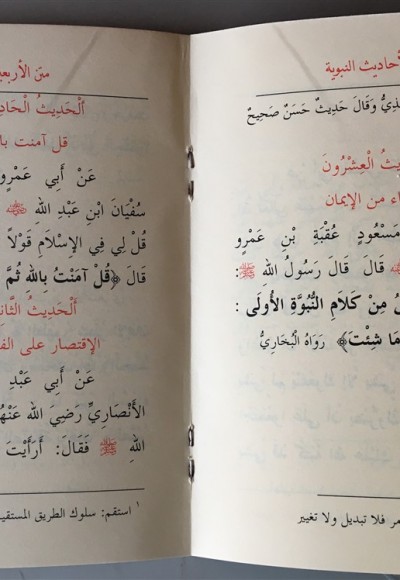 لأحاديث النبوية
ذِيُّ وَقَالَ حَدِيثٌ حَسَنٌ صَحِيحٌ
يثُ الْعِشْرُونَ
اء من الإيمان
مَسْعُودٍ عُقْبَةَ بْنِ عَمْرٍو
قَالَ قَالَ رَسُولُ اللهِ ﷺ :
مِنْ كَلَامِ النُّبُوَّةِ الأُولَى :
مَا شِئْتَ﴾ رَوَاهُ الْبُخَارِيُّ
مر فلا تبديل ولا تغيير
متن الأربعي
اَلْحَدِيثُ الْحَادِ
قل آمنت با
عَنْ أَبِي عَمْرٍو
سُفْيَانَ ابْنِ عَبْدِ اللهِ ﷺ
قُلْ لِي فِي الإِسْلَامِ قَوْلًا
قَالَ ﴿قُلْ آمَنْتُ بالله ثُمَّ
اَلْحَدِيثُ الثَّانِ
الإقتصار على الف
عَنْ أَبِي عَبْدِ
الأَنْصَارِيِّ رَضِيَ الله عَنْهُ
اللهِ ﷺ فَقَالَ: أَرَأَيْتَ
١ استقم: سلوك الطريق المستقي